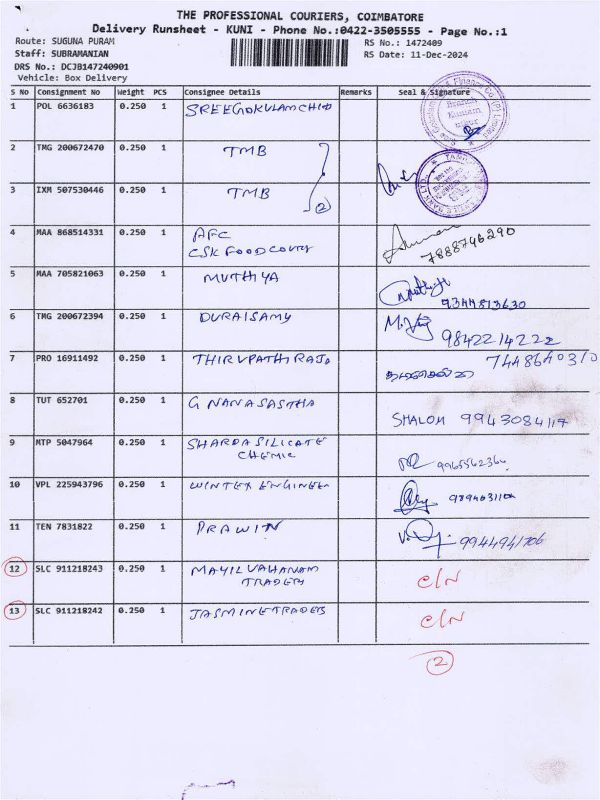 THE PROFESSIONAL COURIERS, COIMBATORE
Delivery Runsheet - KUNI - Phone No.:0422-3505555 - Page No.:1
Route: SUGUNA PURAM
RS No.: 1472409
Staff: SUBRAMANIAN
RS Date: 11-Dec-2024
DRS No.: DCJB147240901
Vehicle: Box Delivery
S No Consignment No Weight PCS Consignee Details Remarks Seal & Signature
1 POL 6636183 0.250 1 SREEGOKULAMCHID
2 TMG 200672470 0.250 1 TMB
3 IXM 507530446 0.250 1 TMB
2
4 MAA 868514331 0.250 1 AFC
CSK FOOD COURT
7888746290
5 MAA 705821063 0.250 1 MUTHIYA
9344813630
6 TMG 200672394 0.250 1 DURAISAMY
9842214222
7 PRO 16911492 0.250 1 THIRUPATHIRAJA
7448640310
8 TUT 652701 0.250 1 GNANASASTHA SHALOM 9943084117
9 MTP 5047964 0.250 1 SHARDASILICATE
CHEMIC
10 VPL 225943796 0.250 1 WINTEX ENGINEE
11 TEN 7831822 0.250 1 PRAWIN 9944941706
12 SLC 911218243 0.250 1 MAYILVAHANAM
TRADERS
C/N
13 SLC 911218242 0.250 1 JASMINETRADERS C/N
2